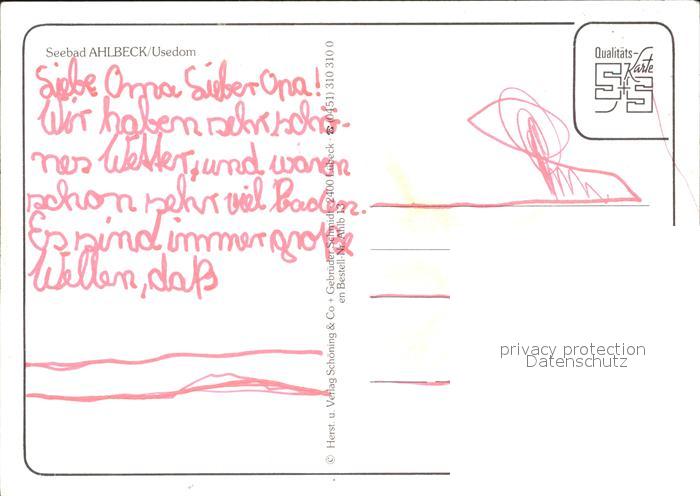 Seebad AHLBECK/Usedom
Liebe Oma Lieber Opa!
Wir haben sehr schö-
nes Wetter, und waren
schon sehr viel baden.
Es sind immer große
Wellen, daß
© Herst. u. Verlag Schöning & Co + Gebrüder Schmidt, 2400 Lübeck · ☎ (0451) 310 310 0
en Bestell-Nr. Ahlb 13
Qualitäts-
Karte
S+S
privacy protection
Datenschutz